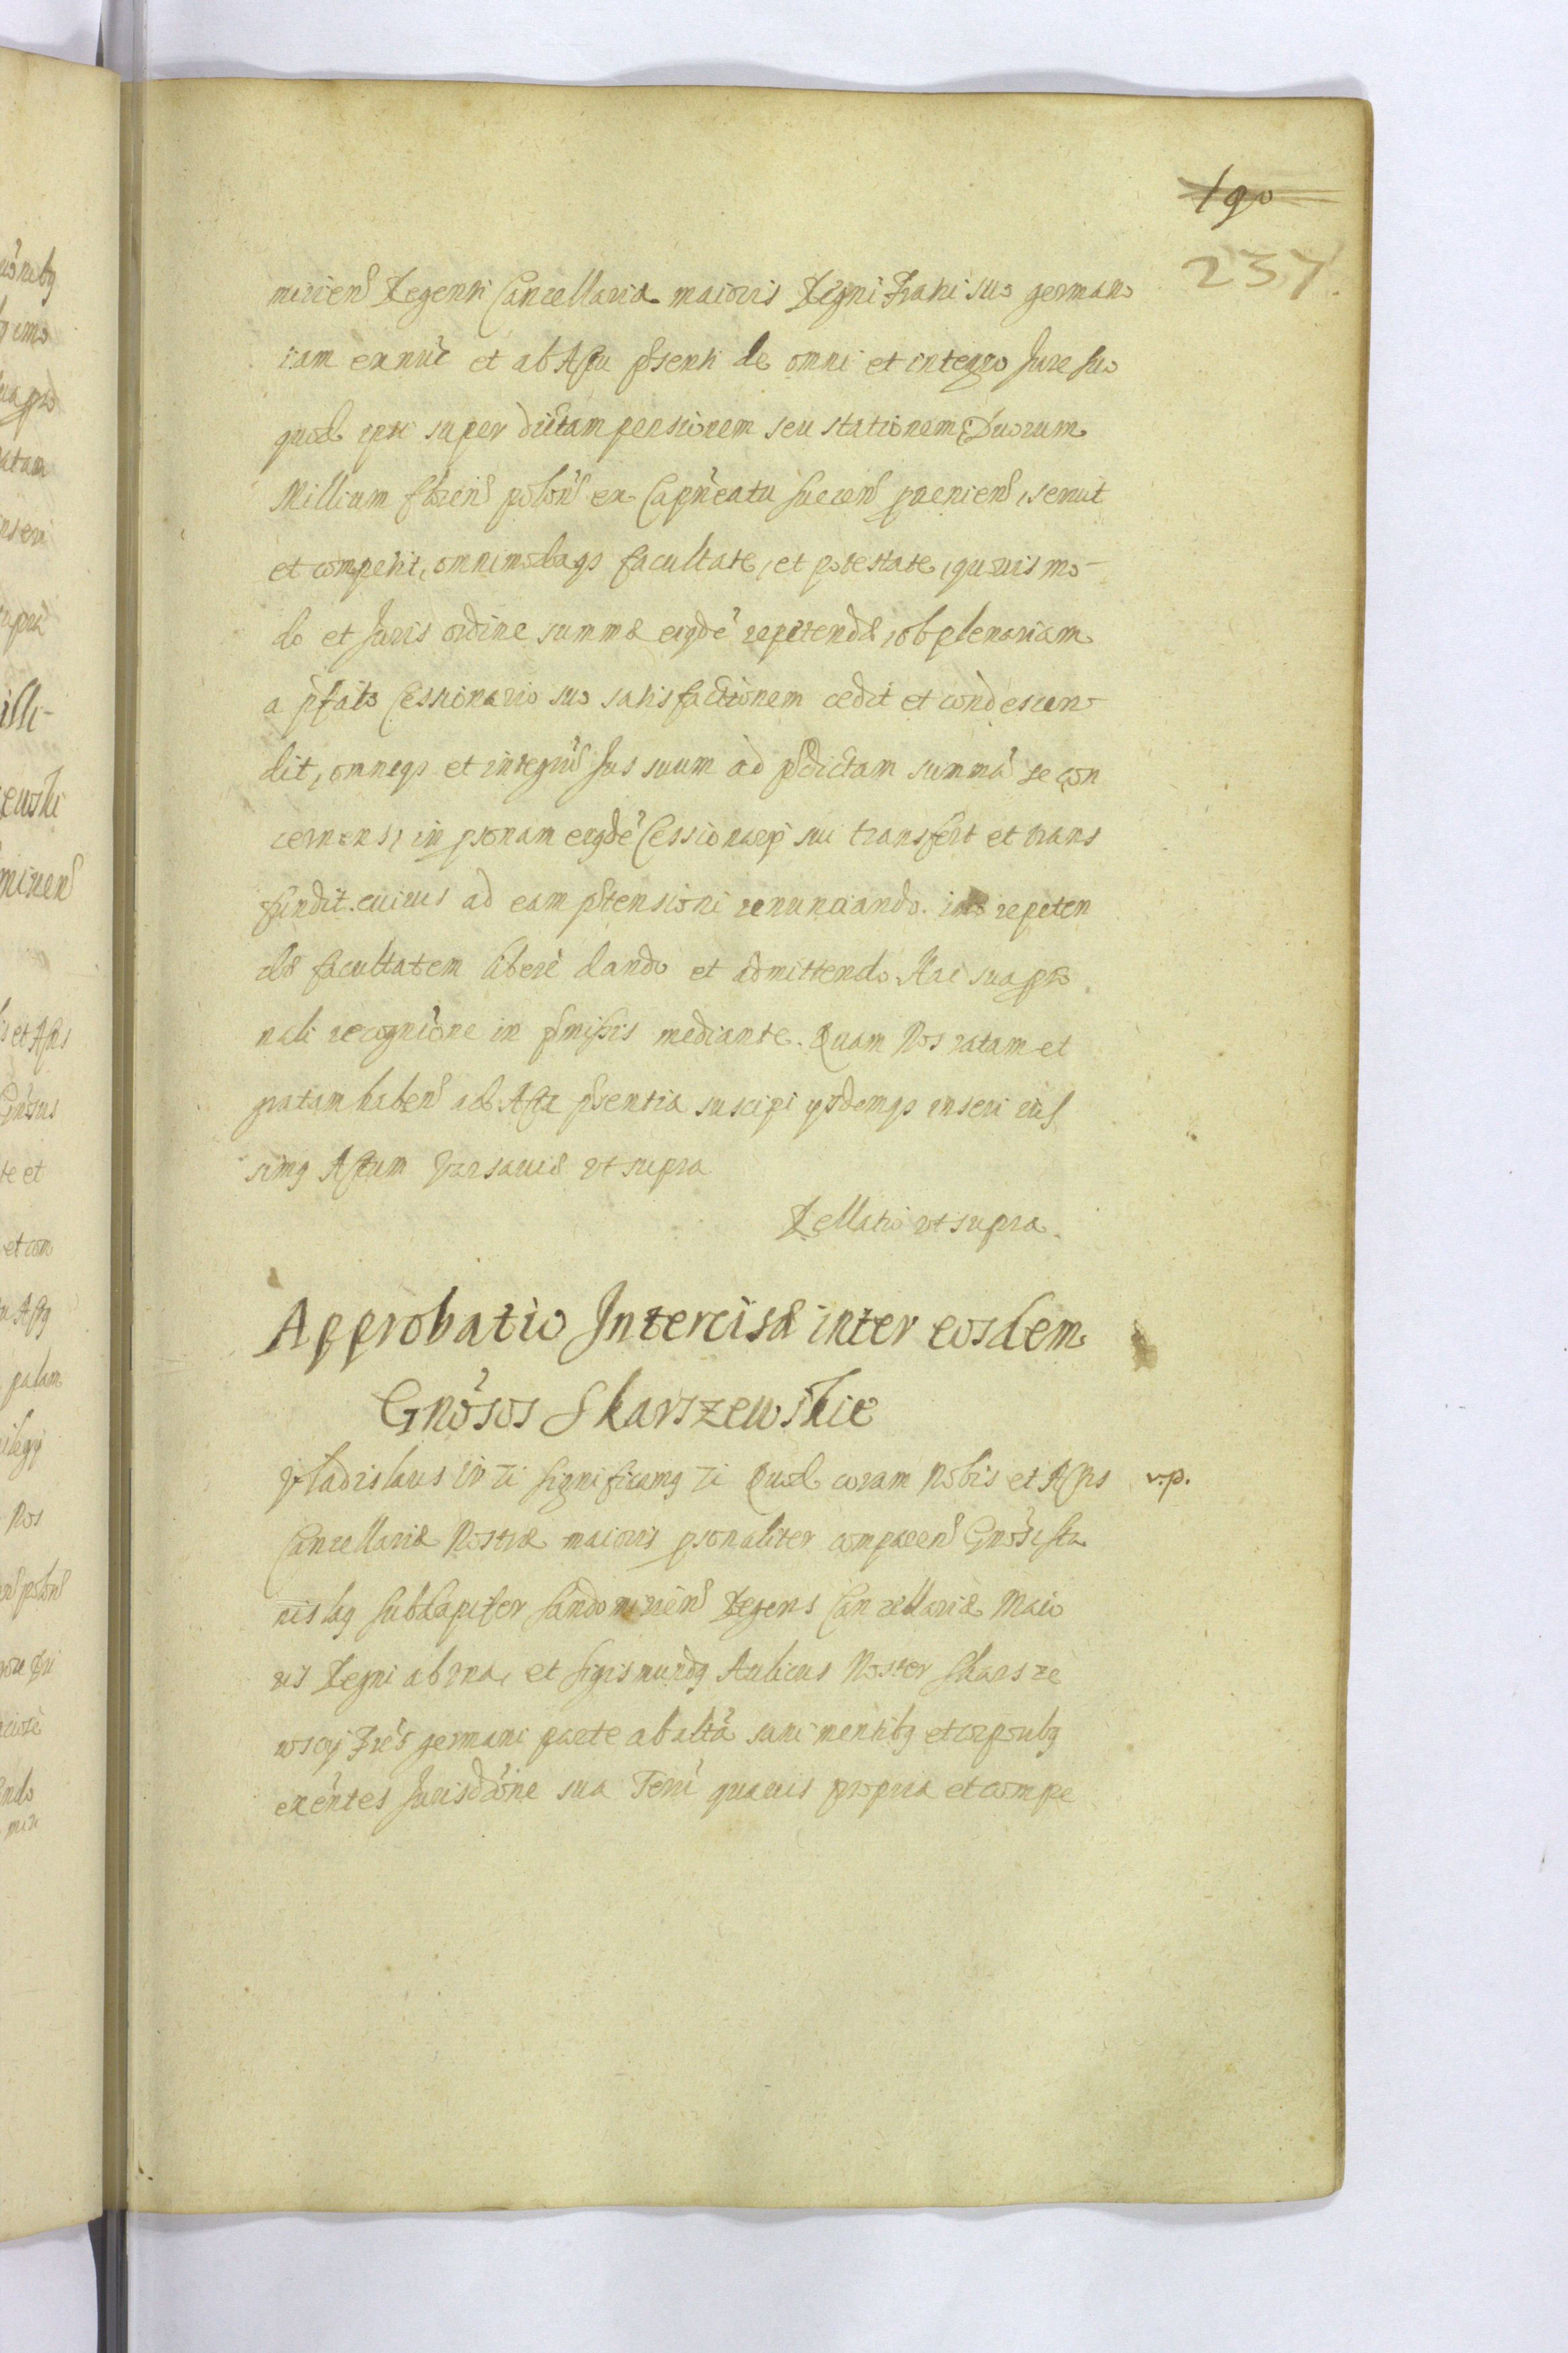 190
237
mirien Regenti Cancellariæ maioris Regni Frati suo germano
iam ex nūc et ab Actu pñsenti de omni et integro Jure suo
quod ipsi super dictam pensionem seu stationem Duorum
Millium floren polon ex Capñeatu pueniens seruit
et competit, omnimodaqз facultate, et potestate, quouis mo-
do et Juris ordine summæ eiqdē repetendæ, ob plenariam
a pfato Cessionario suo satisfactionem cedit et condescen-
dit, omneqз et integrū Jus suum ad pdictam summā se con
cernens, in psonam eiqdē Cessionarij sui transfert et trans
fundit. cuius ad eam ptensioni renunciando. repeten
dæ facultatem liberè dando et admittendo. Hac sua pso
nali recognīone in pmissis mediante. Quam Nos ratam et
gratam haben ad Acta pñsentia suscipi ysdemqз inseri iūs
simq Actum Varsauiæ vt supra
Rellatio vt supra.
Approbatio Intercisæ inter eosdem
Gnōsos Skarszewskie
Vladislaus IV Significamq Quod coram Nobis et Actis
v.p.
Cancellariæ Nostræ maioris psonaliter comparen Gnōsi Sta
nislaq Subdapifer Sandomirien Regens Cancellariæ Maio
ris Regni ab vna, et Sigismundq Aulicus Noster Skarsze
wscy Frēs germani parte ab altā sani mentibq et corporibq
exēntes Jurisdōne sua Terrī quauis propria et compe